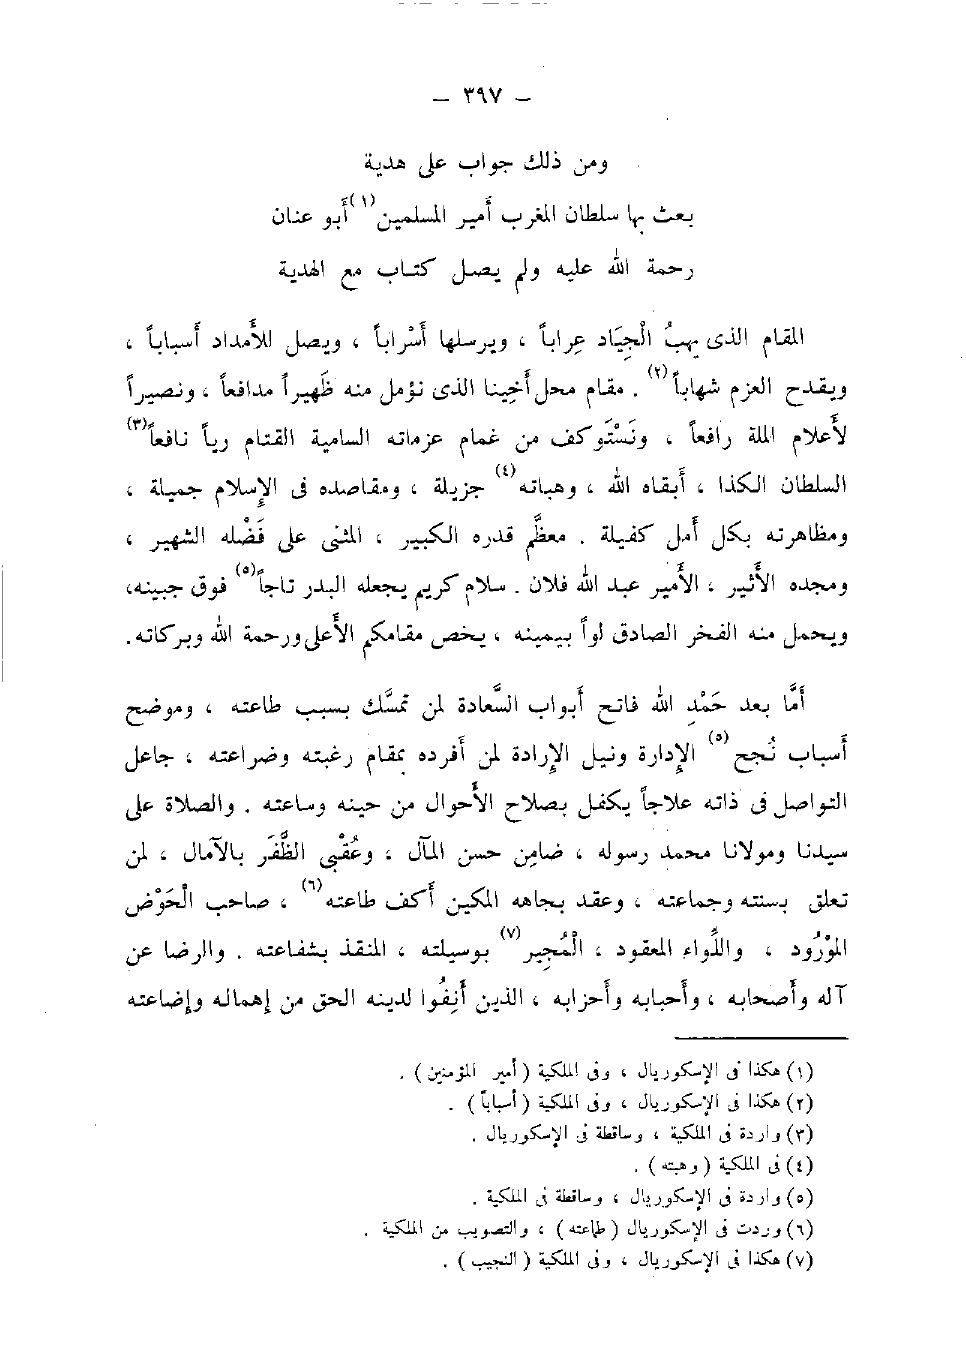 – ٣٩٧ –
ومن ذلك جواب على هدية
بعث بها سلطان المغرب أمير المسلمين(١) أبو عنان
رحمة الله عليه ولم يصل كتاب مع الهدية
المقام الذى يهبُ الْجِيَاد عِراباً ، ويرسلها أَسْراباً ، ويصل للأَمداد أَسباباً ،
ويقدح العزم شهاباً(٢) . مقام محل أَخِينا الذى نؤمل منه ظَهيراً مدافعاً ، ونصيراً
لأَعلام الملة رافعاً ، ونَسْتَوكف من غمام عزماته السامية القتام رياً نافعاً(٣)
السلطان الكذا ، أَبقاه الله ، وهباته(٤) جزيلة ، ومقاصده فى الإِسلام جميلة ،
ومظاهرته بكل أَمل كفيلة . معظَّم قدره الكبير ، المثنى على فَضْله الشهير ،
ومجده الأَثير ، الأَمير عبد الله فلان . سلام كريم يجعله البدر تاجاً(٥) فوق جبينه،
ويحمل منه الفخر الصادق لواً بيمينه ، يخص مقامكم الأَعلى ورحمة الله وبركاته.
أَمَّا بعد حَمْدِ الله فاتح أَبواب السَّعادة لمن تمسَّك بسبب طاعته ، وموضح
أَسباب نُجح(٥) الإِدارة ونيل الإِرادة لمن أَفرده بمقام رغبته وضراعته ، جاعل
التواصل فى ذاته علاجاً يكفل بصلاح الأَحوال من حينه وساعته . والصلاة على
سيدنا ومولانا محمد رسوله ، ضامِن حسن المآل ، وعُقْبى الظَّفَر بالآمال ، لمن
تعلق بسنته وجماعته ، وعقد بجاهه المكين أَكف طاعته(٦) ، صاحب الْحَوْض
الموْرُود ، واللِّواء المعقود ، الْمُجِير(٧) بوسيلته ، المنقذ بشفاعته . والرضا عن
آله وأَصحابه ، وأَحبابه وأَحزابه ، الذين أَنِفُوا لدينه الحق من إهماله وإضاعته
(١) هكذا فى الإسكوريال ، وفى الملكية (أمير المؤمنين) .
(٢) هكذا فى الإسكوريال ، وفى الملكية (أسباباً) .
(٣) واردة فى الملكية ، وساقطة فى الإسكوريال .
(٤) فى الملكية (وهبته) .
(٥) واردة فى الإسكوريال ، وساقطة فى الملكية .
(٦) وردت فى الإسكوريال (طماعته) ، والتصويب من الملكية .
(٧) هكذا فى الإسكوريال ، وفى الملكية (النجيب) .